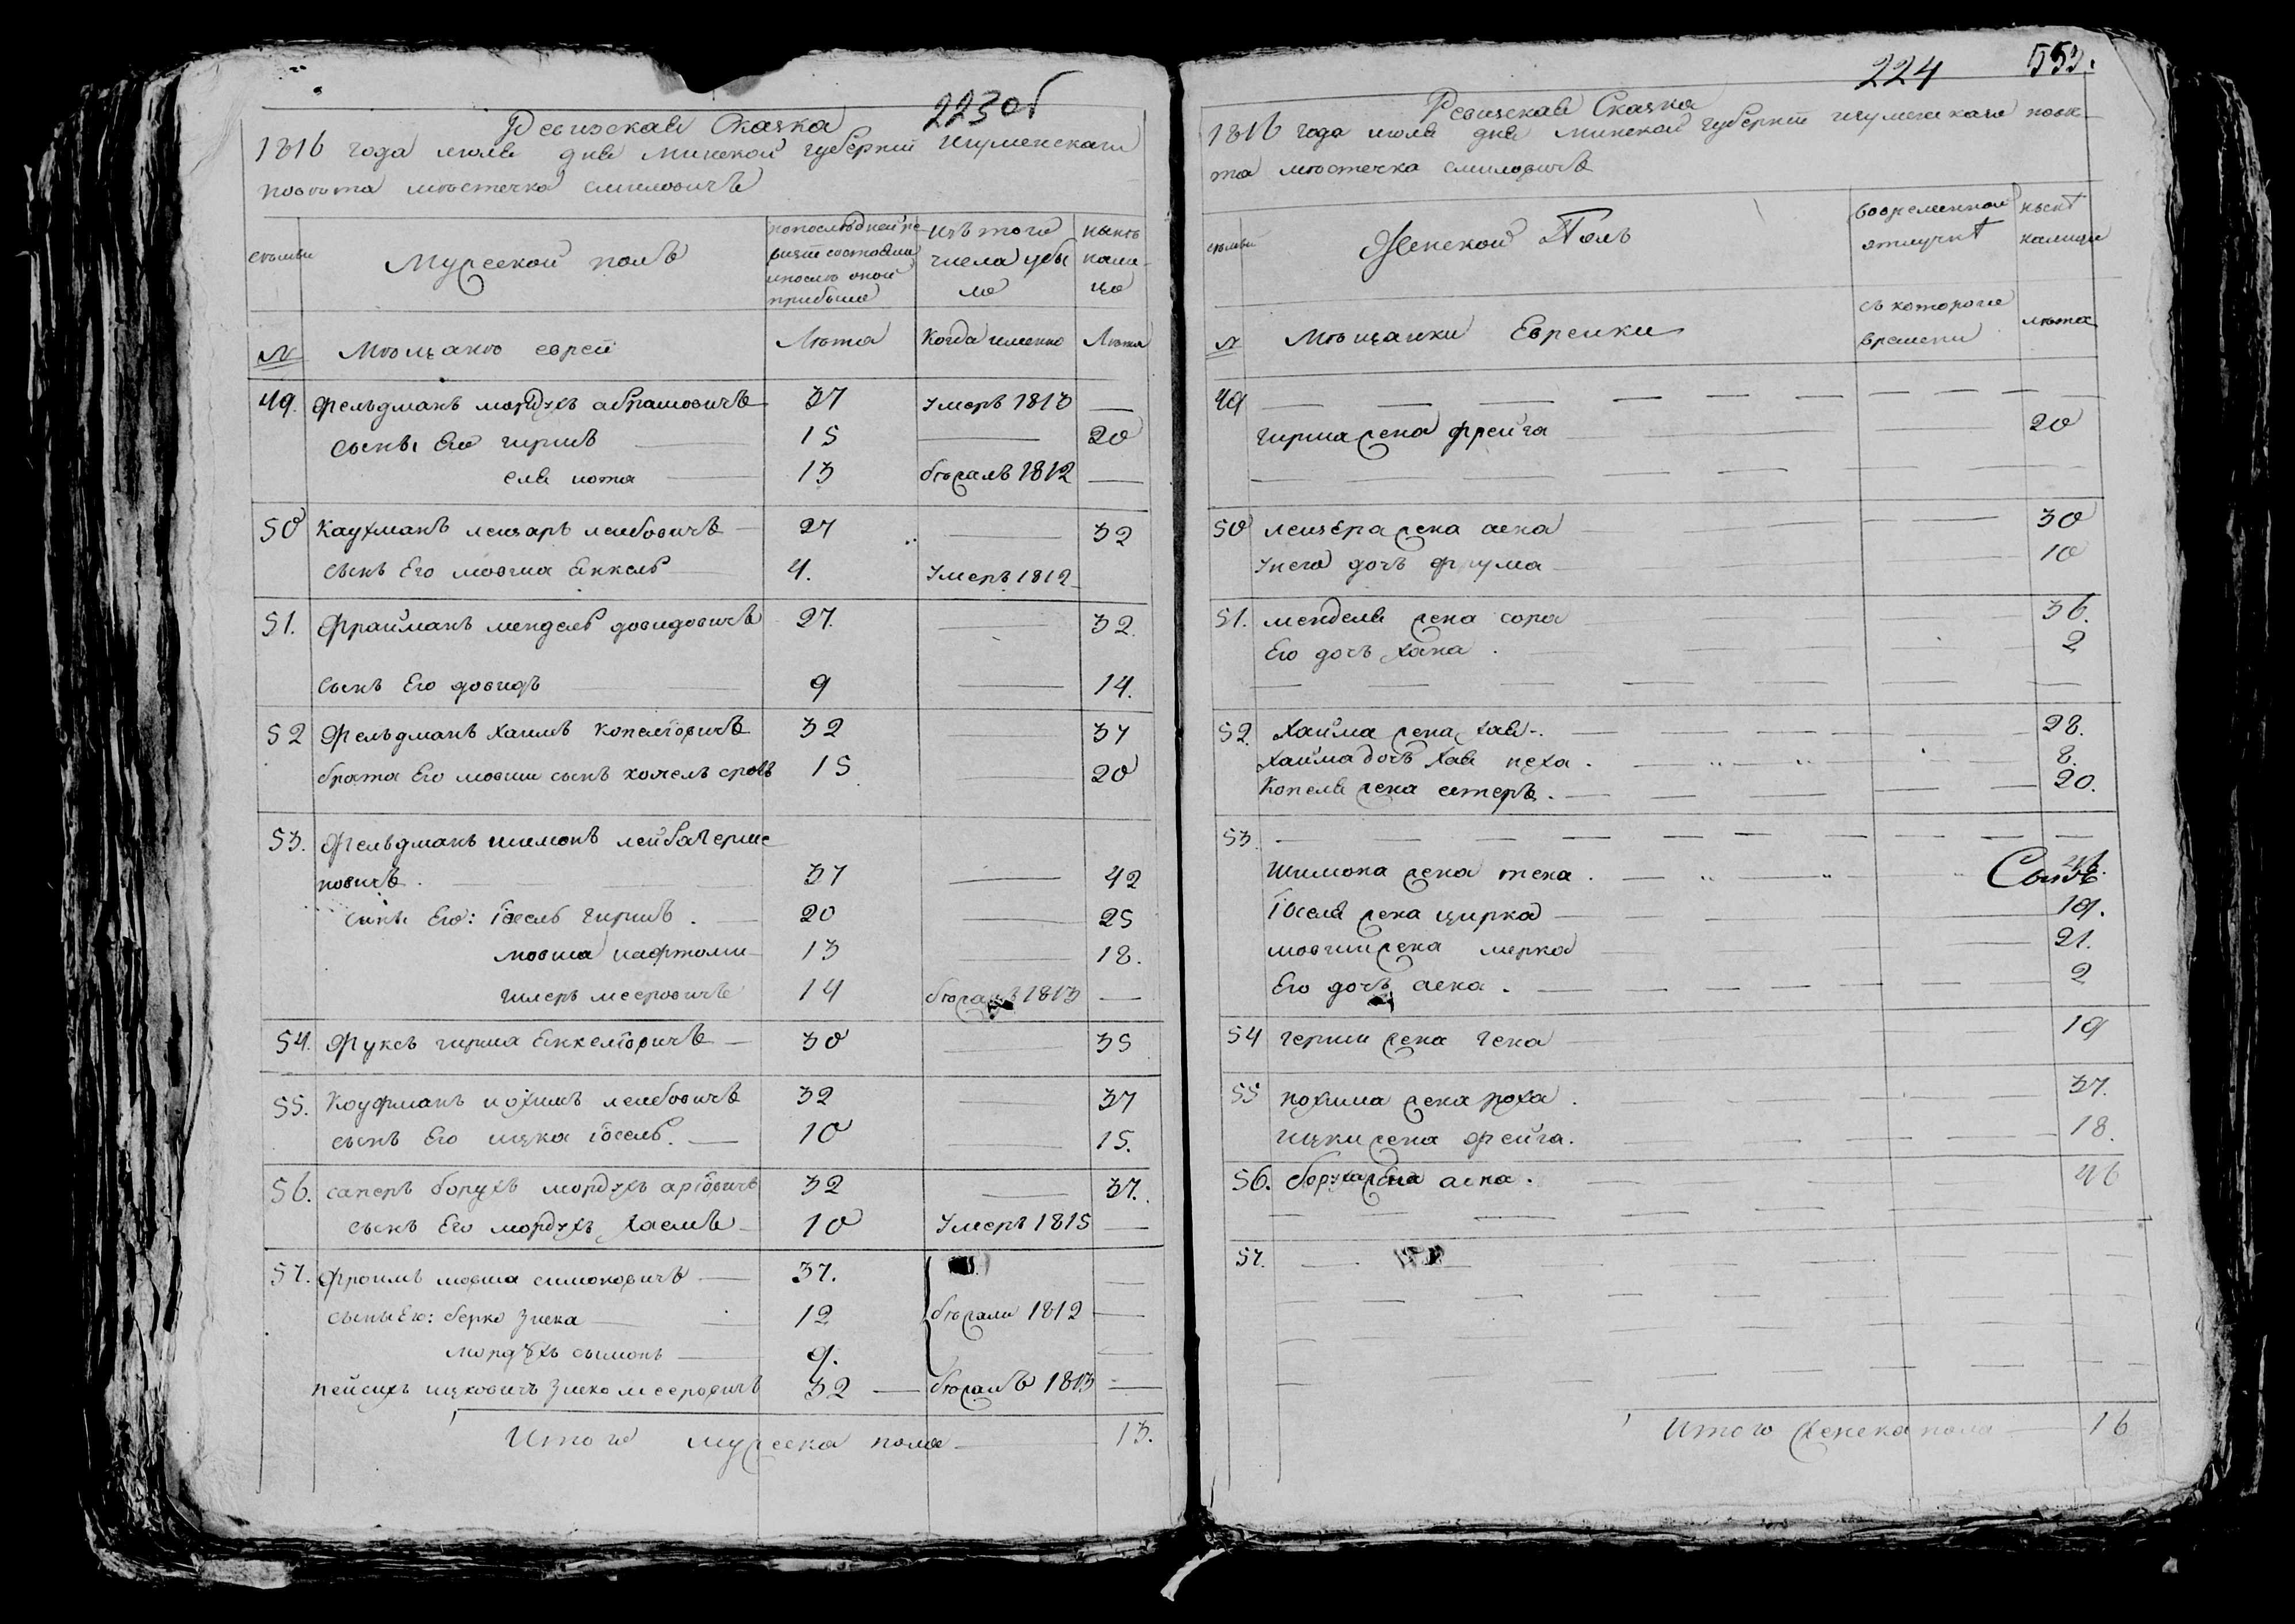 223об
Ревизская Сказка
1816 года июля дня минской губернии Игуменскаго
повѣта мѣстечка смиловичь
семьи
Мужеской полъ
попоследней ре
визіи состояло
ипослѣ оной
прибыло
изъ того
числа убы
ло
нынѣ
нали
цо
№
Мѣщанѣ евреи
Лѣта
Когда именно
Лѣта
49. Фельдманъ мордухъ абрамовичь 37 умеръ 1813 —
сынъ Его гиршъ 15 — 20
нота 13 бѣжалъ 1812 —
50 Кауфманъ леизаръ леибовичь 27 — 32
сынъ Его мовша Енкель 4. умеръ 1812
51. Фрайманъ мендель довидовичь 27. — 32.
сынъ Его довидъ 9 — 14.
52 Фельдманъ хаимъ Копелiовичь 32 37
брата Его мовши сынъ копель 15 20
53. Фельдманъ шимонъ лейба герше
новичь 37 — 42
сынъ Его: Іосель гиршъ 20 — 25
мовша нафтоли 13 — 18.
мееровичь 14 бѣжалъ 1813 —
54. Фуксъ гирша Енкелiовичь 30 — 35
55. Коуфманъ нохимъ леибовичь 32 — 37
сынъ Его ицка Іосель. 10 — 15.
56. саперъ борухъ мордухъ 32 — 37.
сынъ Его мордухъ хаемъ 10 умеръ 1815 —
57. Фроимъ мовша симоновичь 37. —
сыны Его: берко зиска 12 бѣжали 1812 —
мордухъ сымонъ 9. —
пейсихъ ицковичь зиско мееровичь 32 — бѣжалъ 1813 —
Итого мужеска пола 13.
224 553.
Ревизская Сказка
1816 года июля дня минской губерніи игуменскаго повѣ
та мѣстечка смиловичь
семьи
Женской Полъ
вовременной
отлучкѣ
нынѣ
налицо
№
Мѣщанки Еврейки
съ котораго
времени
лѣта
49
гирша жена фрейга 20
50 леизера жена аска 30
унего дочь фрума 10
51. менделя жена сора 36.
Его дочь хана . 2
52. Хайма жена хая. 28.
Хайма дочь хая пеха . 8.
Копеля жена естеръ. 20.
53.
шимона жена тема .
Іоселя жена цирка 19.
мовши жена мерка 21.
Его дочь аска . 2
54 герши жена гена 19
55 нохима жена роха . 37.
ицки жена фрейга. 18.
56. боруха жена аска . 46
57.
Итого женска пола 16